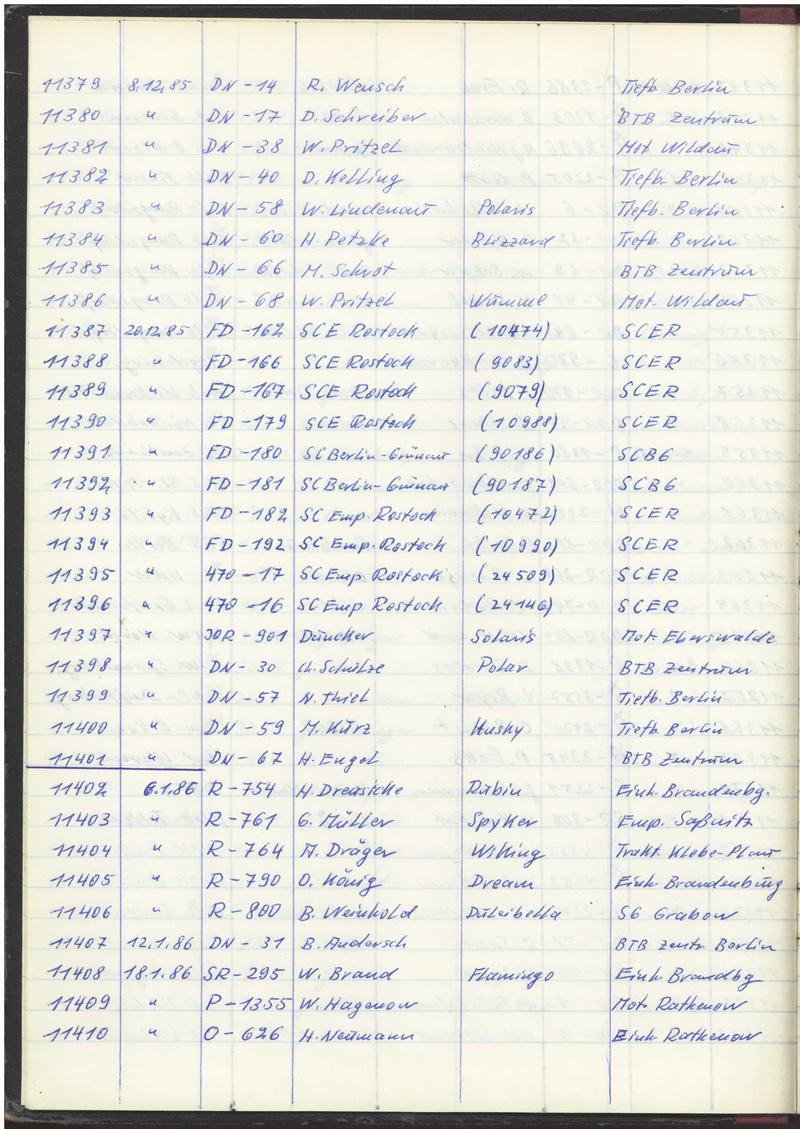 11379 8.12.85 DN-14 R. Wensch Tiefb. Berlin
11380 " DN-17 D. Schreiber BTB Zentrum
11381 " DN-38 W. Pritzel Mot. Wildau
11382 " DN-40 D. Kelling Tiefb. Berlin
11383 " DN-58 W. Lindenau Polaris Tiefb. Berlin
11384 " DN-60 H. Petzke Blizzard Tiefb. Berlin
11385 " DN-66 M. Schrot BTB Zentrum
11386 " DN-68 W. Pritzel Wummel Mot. Wildau
11387 20.12.85 FD-162 SCE Rostock (10474) SCER
11388 " FD-166 SCE Rostock (9083) SCER
11389 " FD-167 SCE Rostock (9079) SCER
11390 " FD-179 SCE Rostock (10988) SCER
11391 " FD-180 SC Berlin-Grünau (90186) SCBG
11392 " FD-181 SC Berlin-Grünau (90187) SCBG
11393 " FD-182 SC Emp. Rostock (10472) SCER
11394 " FD-192 SC Emp. Rostock (10990) SCER
11395 " 470-17 SC Emp. Rostock (24509) SCER
11396 " 470-16 SC Emp. Rostock (24146) SCER
11397 " JOR-901 Duncker Solaris Mot. Eberswalde
11398 " DN-30 Schulze Polar BTB Zentrum
11399 " DN-57 N. Thiel Tiefb. Berlin
11400 " DN-59 M. Kurz Husky Tiefb. Berlin
11401 " DN-67 H. Engel BTB Zentrum
11402 6.1.86 R-754 H. Drensicke Rubin Einh. Brandenbg.
11403 " R-761 G. Müller Spyker Emp. Saßnitz
11404 " R-764 A. Dräger Wiking Trakt. Klebe-Plau
11405 " R-790 O. König Dream Einh. Brandenburg
11406 " R-800 B. Weinhold Dulcibella SG Grabow
11407 12.1.86 DN-31 B. Andersch BTB Zentr. Berlin
11408 18.1.86 SR-295 W. Brand Flamingo Einh. Brandbg
11409 " P-1355 W. Hagenow Moto Rathenow
11410 " O-626 H. Neumann Einh. Rathenow